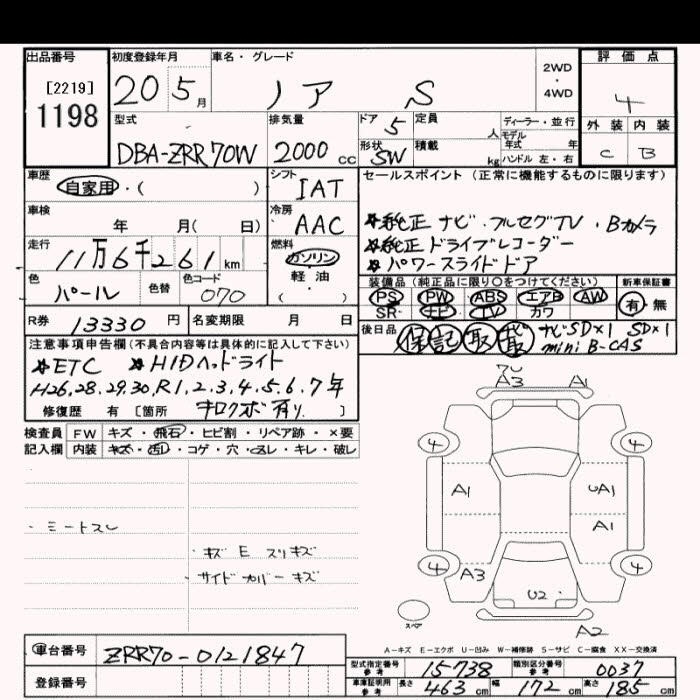 出品番号 初度登録年月 車名・グレード 評価点
[2219]
1198
20 5月 ノア S 2WD・4WD 4
型式 排気量 ドア 定員 ディーラー・並行 外装 内装
DBA-ZRR70W 2000cc 5 人 モデル年式 年 C B
形状 積載
SW kg ハンドル 左・右
車歴 シフト セールスポイント(正常に機能するものに限ります)
自家用・( ) IAT
車検 冷房 ★純正 ナビ・フルセグTV・Bカメラ
年 月(日) AAC ★純正 ドライブレコーダー
走行 燃料 ★パワースライドドア
11万6千261km ガソリン・軽・油・( )
色 色替 色コード 装備品(純正品に限り○をつけてください) 新車保証書
パール 070 PS PW ABS エアB AW 有・無
SR ナビ TV カワ
R券 13330円 名変期限 月 日 後日品 保 記 取 ナビSD×1 SD×1
mini B-CAS
注意事項申告欄(不具合内容等は具体的に記入して下さい)
★ETC ★HIDヘッドライト
H26,28,29,30,R1,2,3,4,5,6,7年
修復歴 有[箇所 キロクボ有り]
検査員 FW キズ・飛石・ヒビ割・リペア跡・×要
記入欄 内装 キズ・汚レ・コゲ・穴・スレ・キレ・破レ
A3 A1
4 4
A1 UA1
A1
・シートスレ
・キズ E スリキズ
・サイドカバーキズ
4 A3 4
U2
スペア
A2
A-キズ E-エクボ U-凹み W-補修跡 S-サビ C-腐食 XX-交換済
車台番号 ZRR70-0121847
型式指定番号参考 15738 類別区分番号参考 0037
登録番号
車庫証明用参考 長さ 463cm 幅 172cm 高さ 185cm